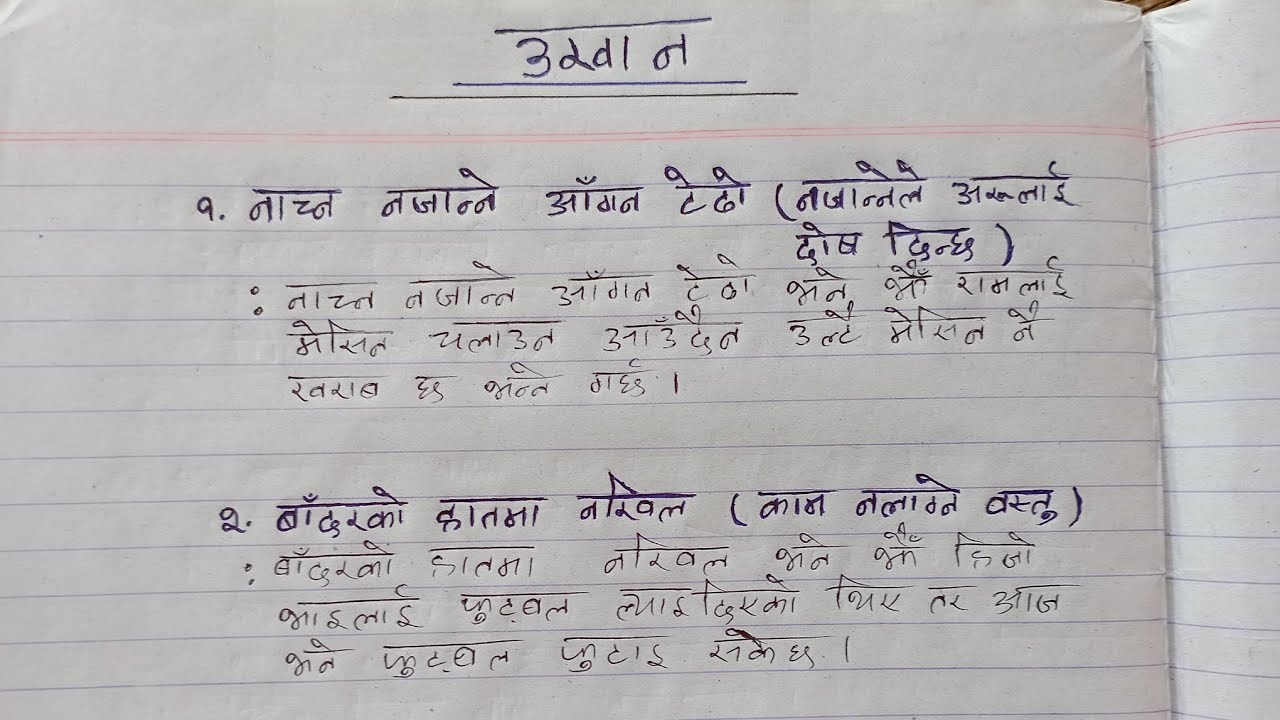 उखान
१. नाच्न नजान्ने आँगन टेढो (नजान्नेले अरूलाई
दोष दिन्छ)
: नाच्न नजान्ने आँगन टेढो भने झैँ रामलाई
मेसिन चलाउन आउँदैन उल्टै मेसिन नै
खराब छ भन्ने गर्छ ।
२. बाँदरको हातमा नरिवल (काम नलाग्ने वस्तु)
: बाँदरको हातमा नरिवल भने झैँ हिजो
भाइलाई फुटबल ल्याइदिएको थिए तर आज
भने फुटबल फुटाइ सकेछ ।